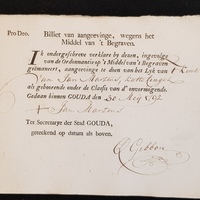 Pro Deo.
Billiet van aangevinge, wegens het
Middel van 't Begraven.
IK ondergeschreve verklare by dezen, ingevolge
van de Ordonnantie op 't Middel van 't Begraven
geëmaneert, aangevinge te doen van het Lyk van 't Kind
van Jan
als gehoorende onder de Classis van d' onvermogende.
Gedaan binnen GOUDA den 30 May 1792
Jan
Ter Secretarye der Stad GOUDA,
geteekend op datum als boven.